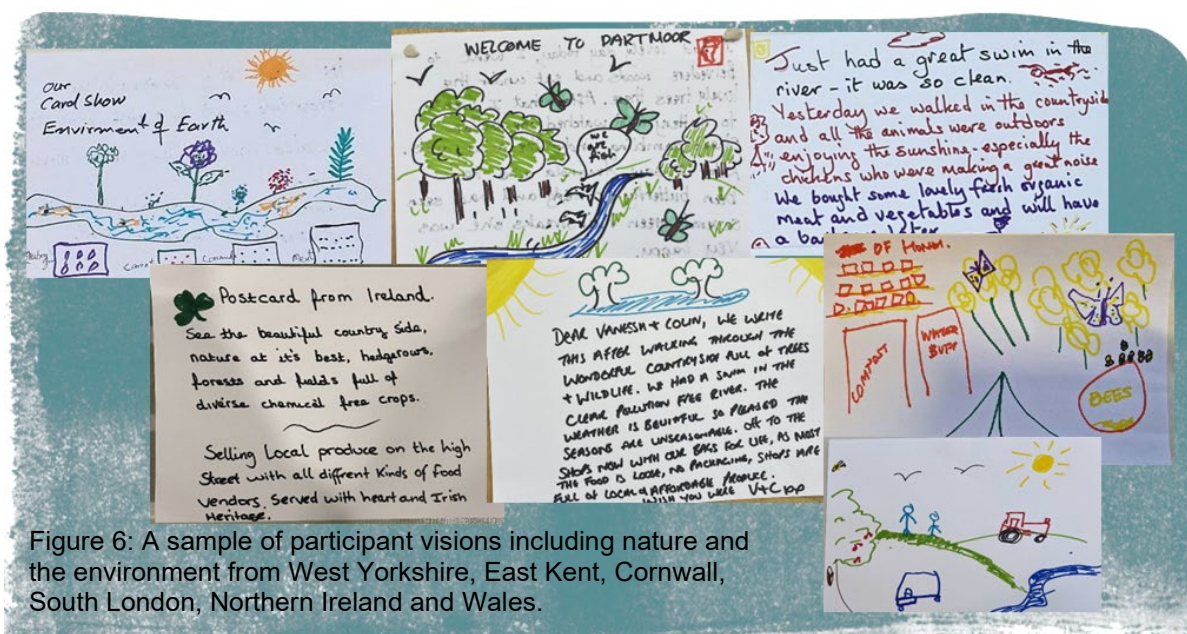 Our
Card Show
Enviroment & Earth
WELCOME TO DARTMOOR
we
are
fish
Just had a great swim in the
river - it was so clean.
Yesterday we walked in the countryside
and all the animals were outdoors
enjoying the sunshine - especially the
chickens who were making a great noise
We bought some lovely fresh organic
meat and vegetables and will have
a barbecue later
Postcard from Ireland.
See the beautiful country side,
nature at it's best, hedgerows,
forests and fields full of
diverse chemical free crops.
Selling local produce on the high
Street with all different kinds of food
vendors. Served with heart and Irish
Heritage.
DEAR VANESSA + COLIN, WE WRITE
THIS AFTER WALKING THROUGH THE
WONDERFUL COUNTRYSIDE FULL OF TREES
+ WILDLIFE. WE HAD A SWIM IN THE
CLEAR POLLUTION FREE RIVER. THE
WEATHER IS BEUITFUL SO PLEASED THE
SEASONS ARE UNSEASONABLE. OFF TO THE
SHOPS NOW WITH OUR BAGS FOR LIFE, AS MOST
THE FOOD IS LOOSE, NO PACKAGING, SHOPS ARE
FULL OF LOCAL & AFFORDABLE PRODUCE.
WISH YOU WERE V+C
OF HONOR.
COMPOST
WATER
BUTT
BEES
Figure 6: A sample of participant visions including nature and
the environment from West Yorkshire, East Kent, Cornwall,
South London, Northern Ireland and Wales.